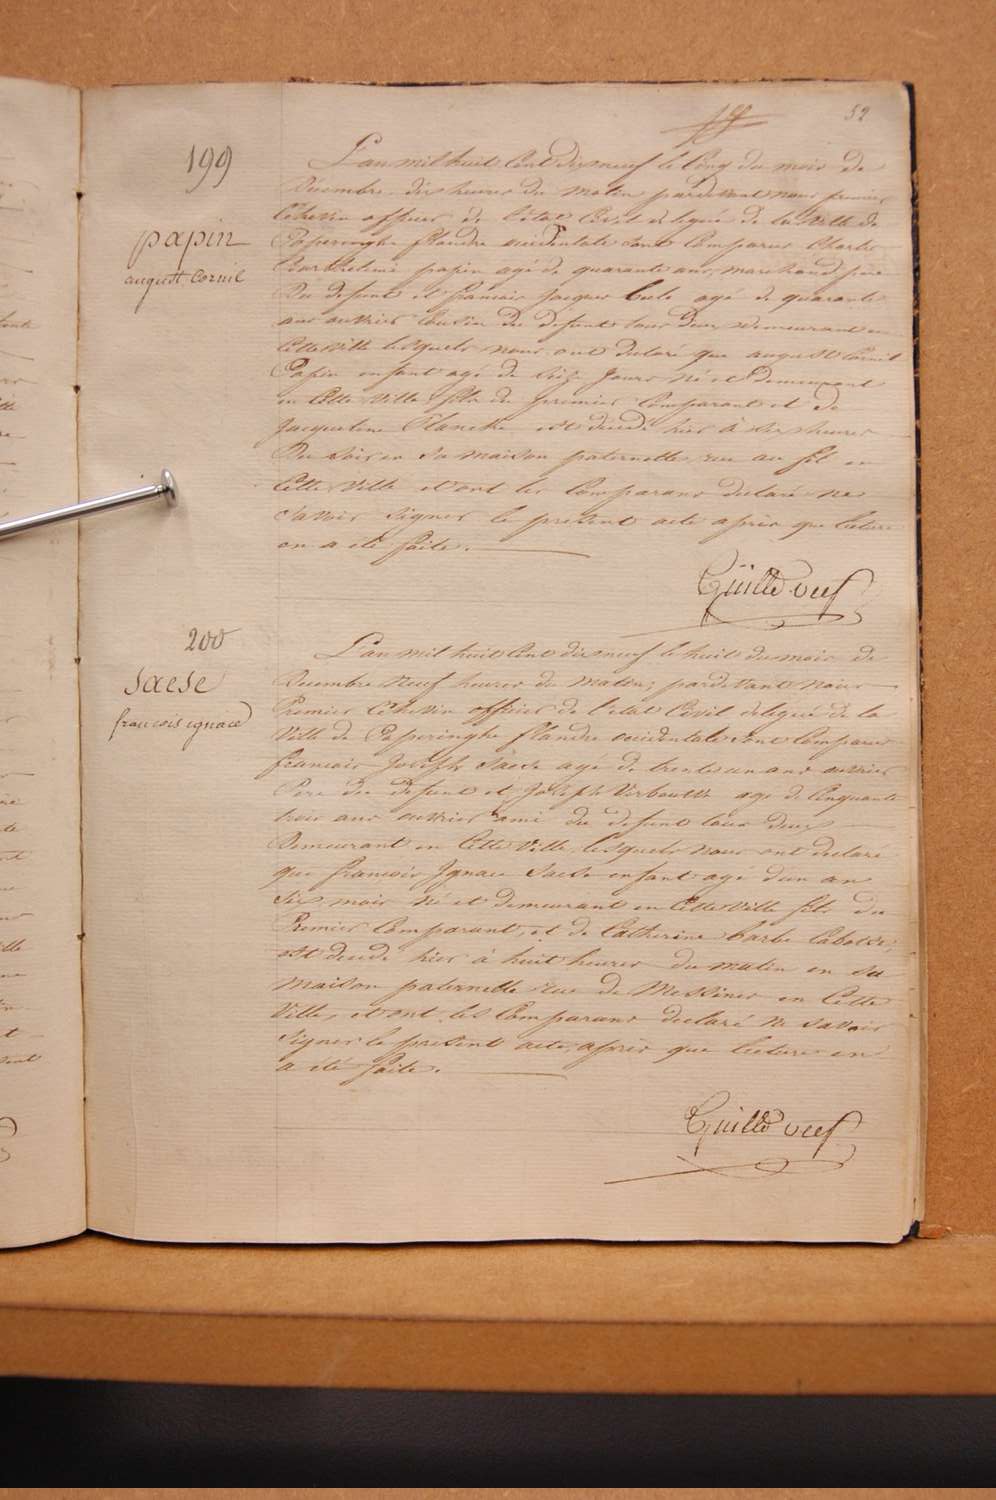 52
199
papin
august Cornil
L'an mil huit Cent dix neuf le Cinq du mois de
Décembre dix heures du matin pardevant nous premier
Echevin officier de l'état Civil delegué de la Ville de
Poperinghe flandre occidentale sont Comparus Charles
Barthelemi papin agé de quarante ans, marchand père
Du defunt et francois Jacques agé de quarante
ans ouvrier Cousin du defunt tous deux demeurant en
Cette Ville lesquels nous ont declaré que august Cornil
Papin enfant agé de Jours né et Demeurant
en Cette Ville fils du premier Comparant et de
Jacqueline Plancke est décédé hier à six heures
Du soir en sa maison paternelle rue au fil en
Cette Ville et ont les Comparans declaré ne
savoir signer le present acte après que lecture
en a été faite.
200
saese
francois ignace
L'an mil huit Cent dix neuf le huit du mois de
Decembre neuf heures du matin, pardevant nous
Premier Echevin officier de l'etat Civil delegué de la
Ville de Poperinghe flandre occidentale sont Comparus
francois Joseph Saese agé de trente un ans ouvrier
Pere du defunt et Joseph agé de Cinquante
trois ans ouvrier ami du defunt tous deux
Demeurant en Cette Ville, lesquels nous ont declaré
que francois Ignace Saese enfant agé d'un an
six mois né et demeurant en Cette Ville fils du
Premier Comparant, et de Catherine barbe
est decedé hier à huit heures du matin en sa
maison paternelle rue de Messines en Cette
Ville, et ont les Comparans declaré ne savoir
signer le present acte, après que lecture en
a été faite.